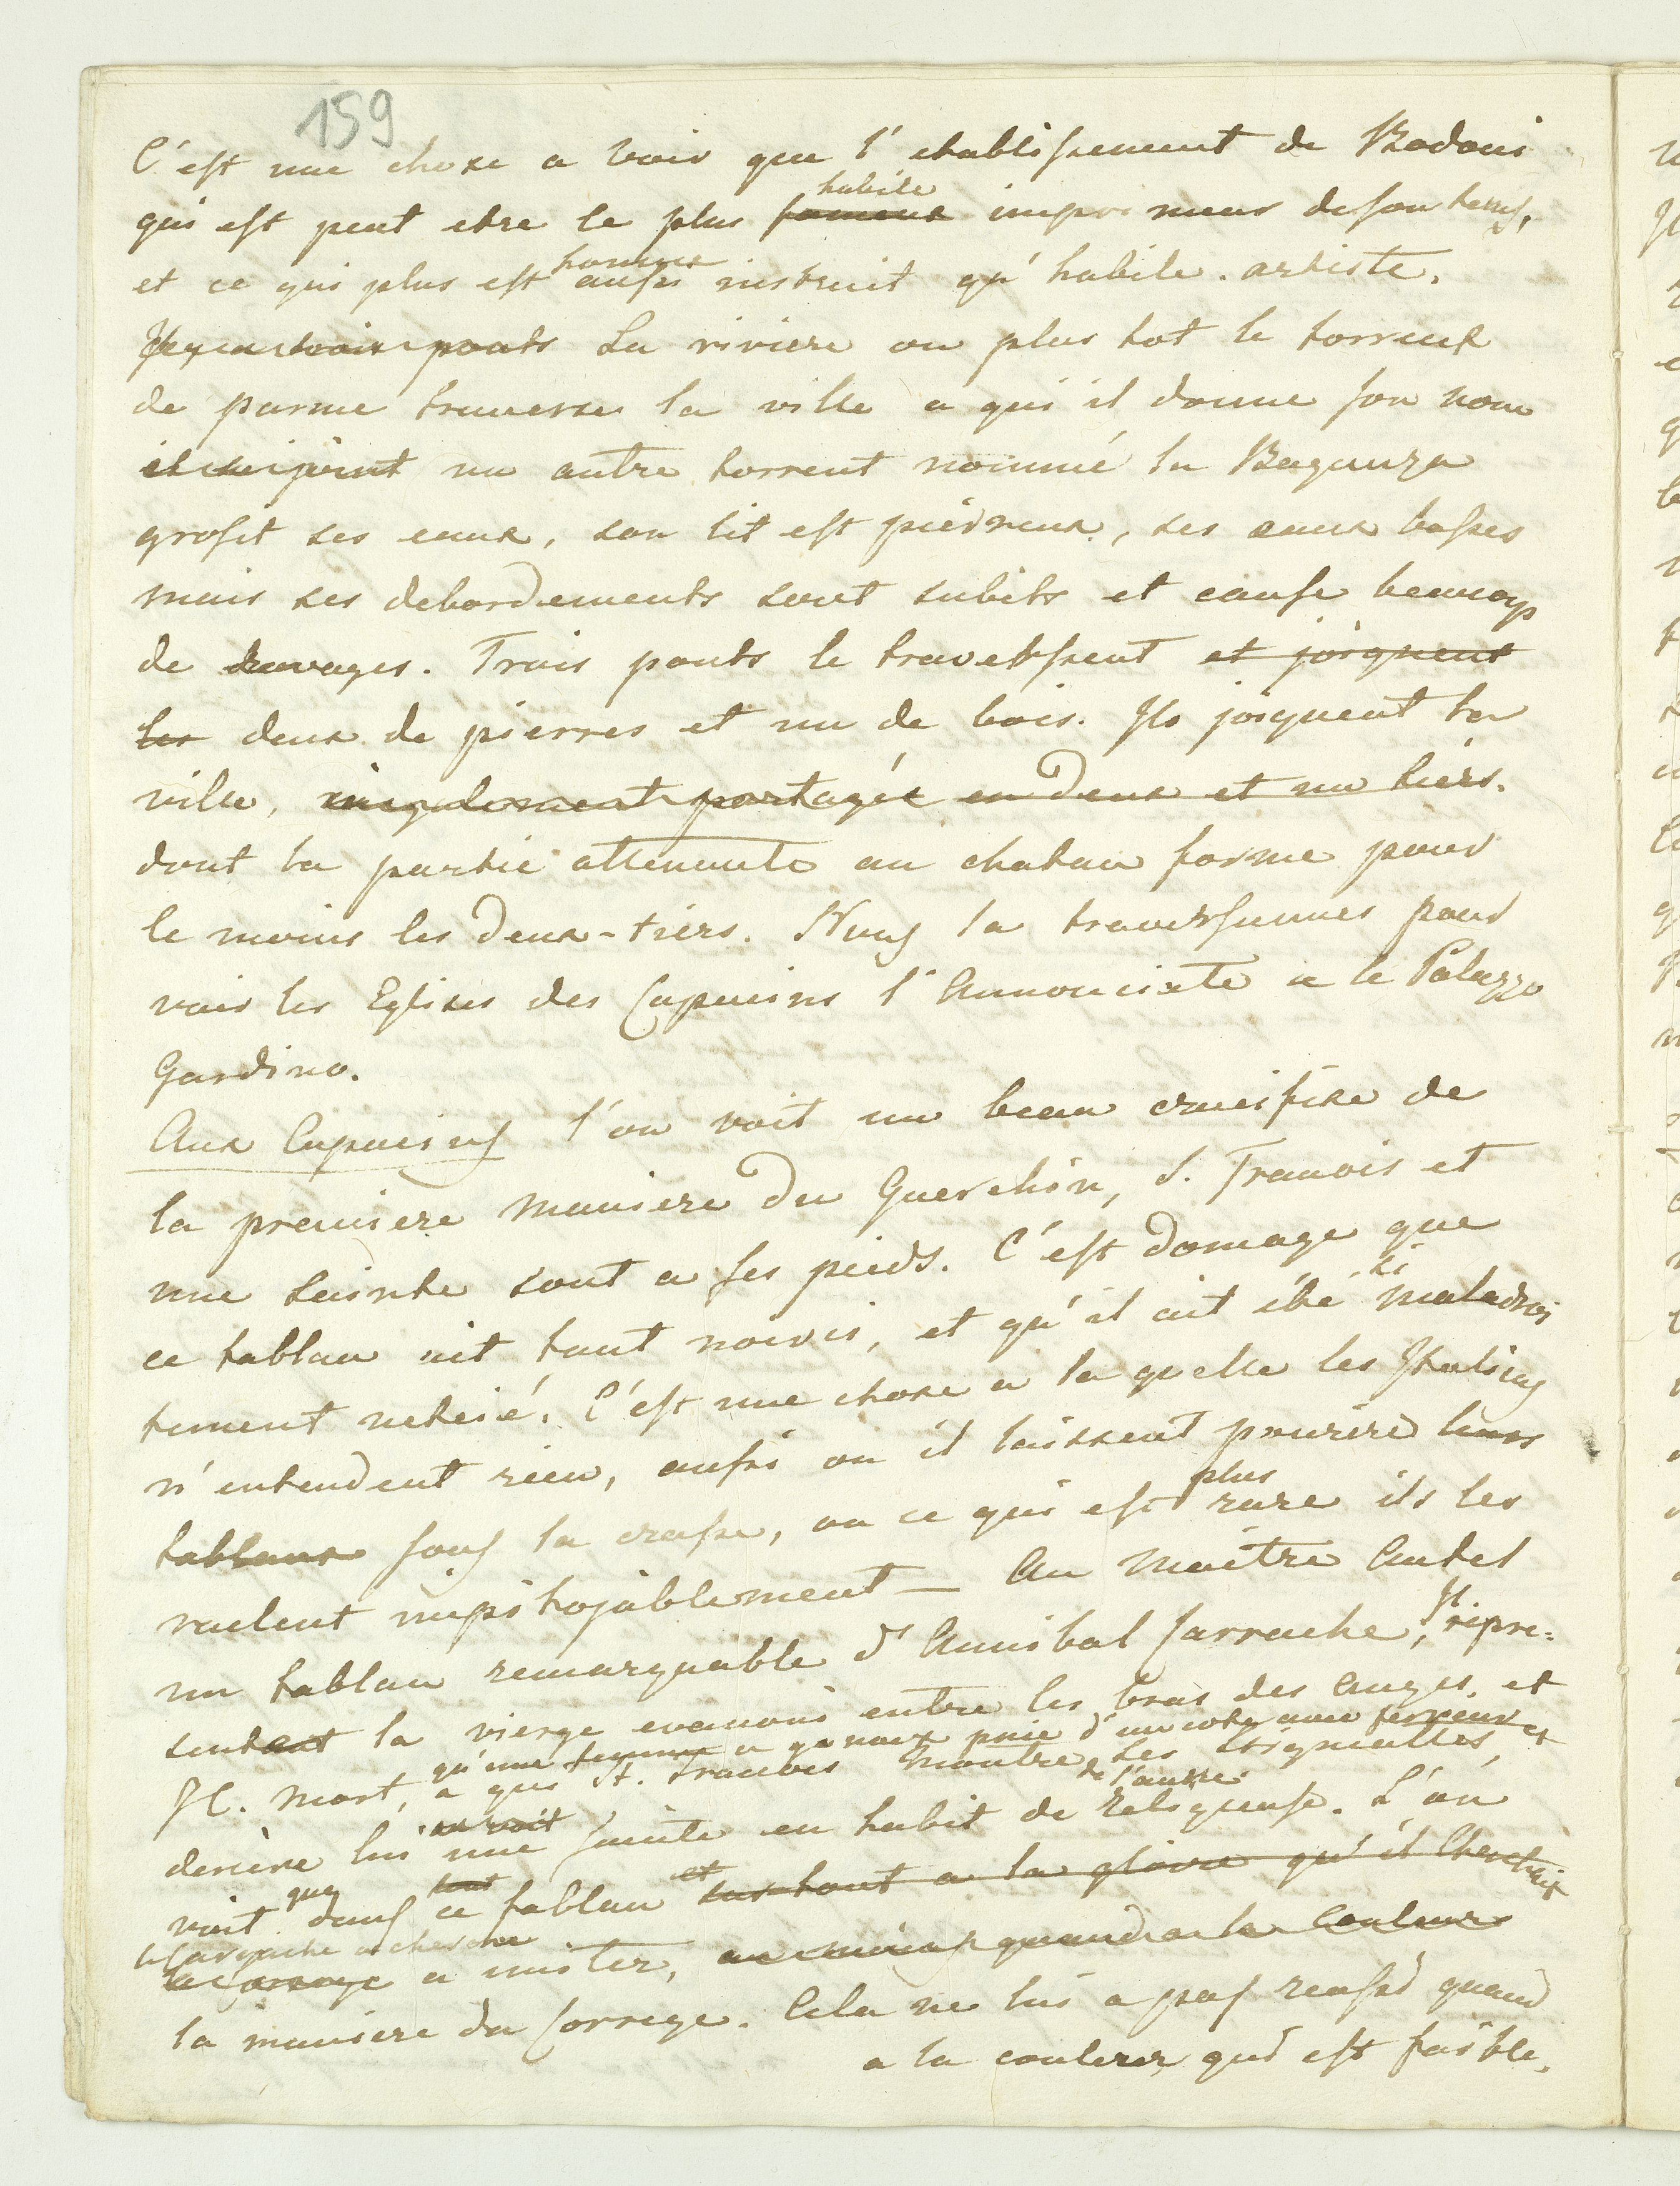 159
C'est une chose a voir que l'etablissement de Bodoni
habile
qui est peut etre le plus fameux imprimeur de son tems,
homme
et ce qui plus est aussi instruit qu'habile artiste.
Il y a trois ponts La riviere ou plus tot le torrent
de parme traverse la ville a qui il donne son nom
un autre torrent nommé la Baganza
grosit ses eaux, son lit est pierreux, ses eaux basses
mais ses debordements sont subits et cause beaucop
de ravages. Trois ponts le traversent et joignent
les deux de pierres et un de bois. Ils joignent la
ville, inegalement partagée en deux et un tiers.
dont la partie attenante au chatau forme pour
le moins les deux-tiers. Nous la traversames pour
voir les Eglises des Capucins l'Annonciate a le Palazzo
Gardino.
Aux Capucins l'on voit un beau crucifixe de
la premiere maniere du Guerchin, S. Francois et
une Sainte sont a ses pieds. C'est domage que
si
ce tablau ait tant noirci, et qu'il ait été maladroi
tement netoié. C'est une chose a la quelle les Italiens
n'entendent rien, aussi ou il laissent pourire leurs
plus
tablaux sous la crasse, ou ce qui est rare ils les
raclent impitojablement — Au Maitre Autel
Il
un tablau remarquable d'Annibal Carrache, repre-
sentant la vierge evanouie entre les bras des Anges, et
qu'une femme a genoux prie d'un coté avec ferveur et
JC. mort, a qui St. Francois montre les Stigmattes,
de l'autre
deriere lui une sainte en habit de Religieuse. L'on
on voit
que tout et
voit dans ce tablau surtout a la gloire qu'il cherchait
le Carrache a chercher
a imiter, quand a la Couleur
la maniere du Correge. Cela ne lui a pas reussi quand
a la couleur qui est faible.